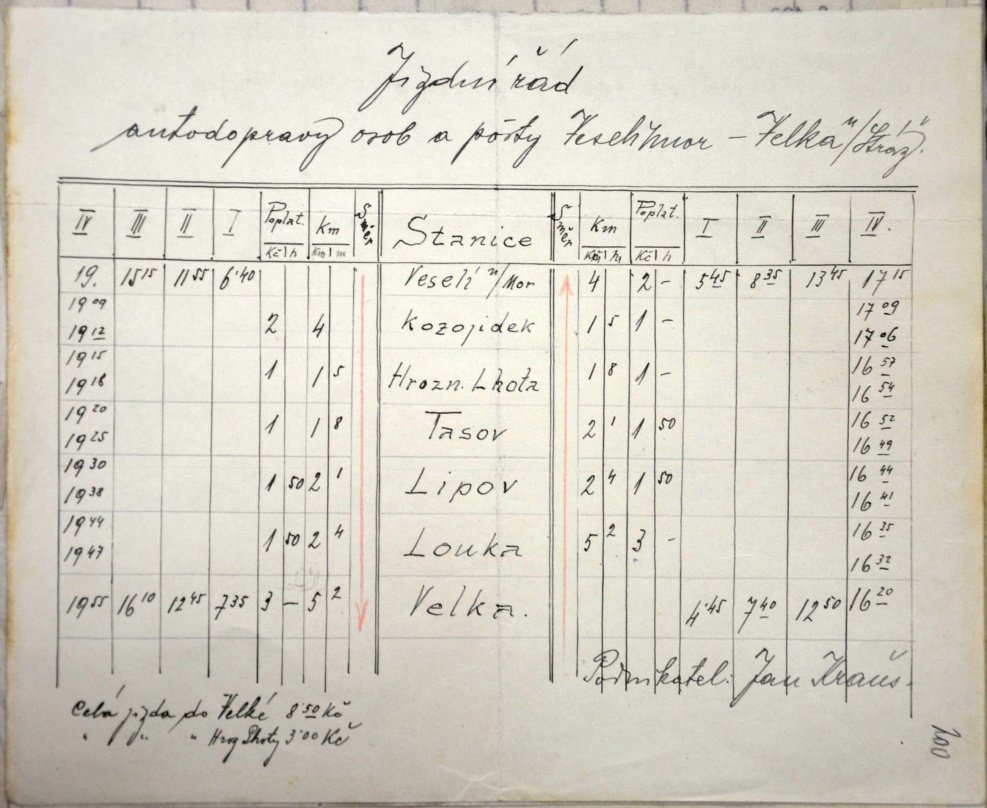 Jízdní řád
autodopravy osob a pošty Veselí n/mor – Velká n/Stráž.
IV III II I Poplat. Km Směr Stanice Směr Km Poplat. I II III IV.
Kč h Km m Km h Kč h
19. 15 15 11 55 6 40 Veselí n/Mor 4 2 – 5 45 8 35 13 45 17 15
19 09 17 09
19 12 2 4 Kozojidek 1 5 1 – 17 06
19 15 16 57
19 18 1 1 5 Hrozn. Lhota 1 8 1 – 16 54
19 20 16 52
19 25 1 1 8 Tasov 2 1 1 50 16 49
19 30 16 44
19 38 1 50 2 1 Lipov 2 4 1 50 16 41
19 44 16 35
19 47 1 50 2 4 Louka 5 2 3 – 16 32
19 55 16 10 12 45 7 35 3 – 5 2 Velka. 4 45 7 40 12 50 16 20
Podnikatel: Jan Krauś.
Celá jizda do Velké 8·50 Kč
" " " Hroz Lhoty 3·00 Kč
200